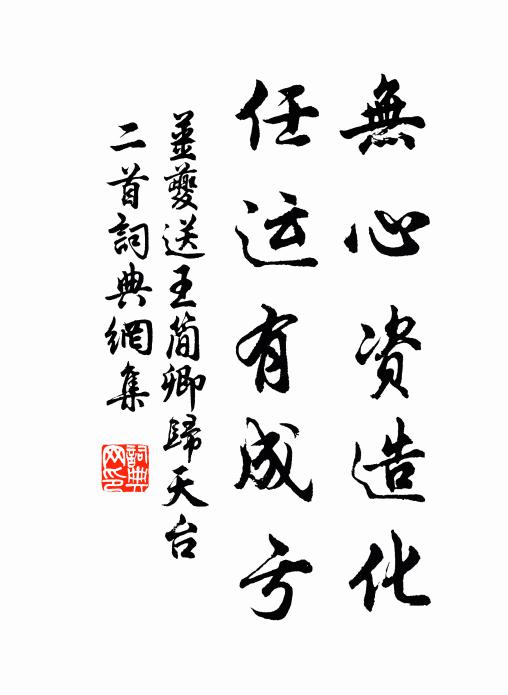 無心资造化
任运有成亏
姜夔送王简卿歸天台
二首詞典網集
詞典网印